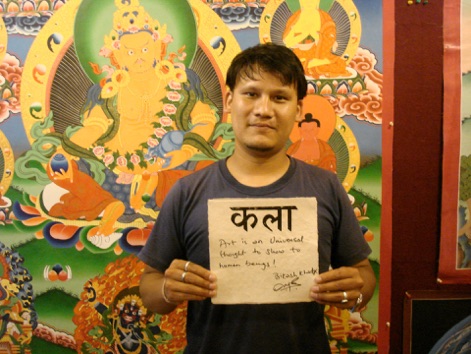 कला
Art is an Universal
thought to show to
human beings!
Bikash